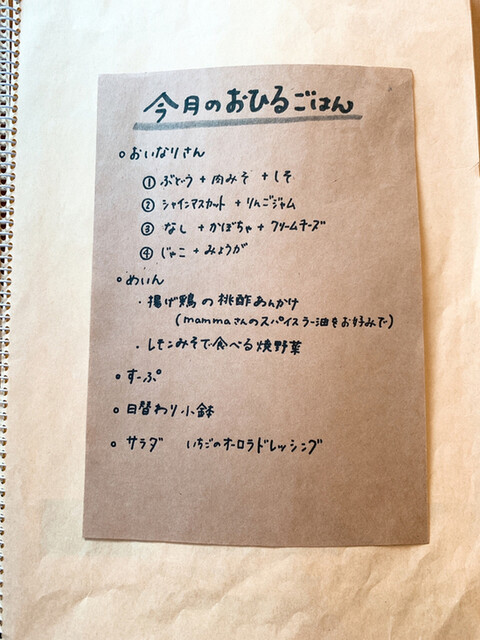 今月のおひるごはん
○おいなりさん
① ぶどう + 肉みそ + しそ
② シャインマスカット + りんごジャム
③ なし + かぼちゃ + クリームチーズ
④ じゃこ + みょうが
○めいん
・揚げ鶏の桃酢あんかけ
(mammaさんのスパイスラー油をお好みで)
・レモンみそで食べる焼野菜
○すーぷ
○日替わり小鉢
○サラダ いちごのオーロラドレッシング